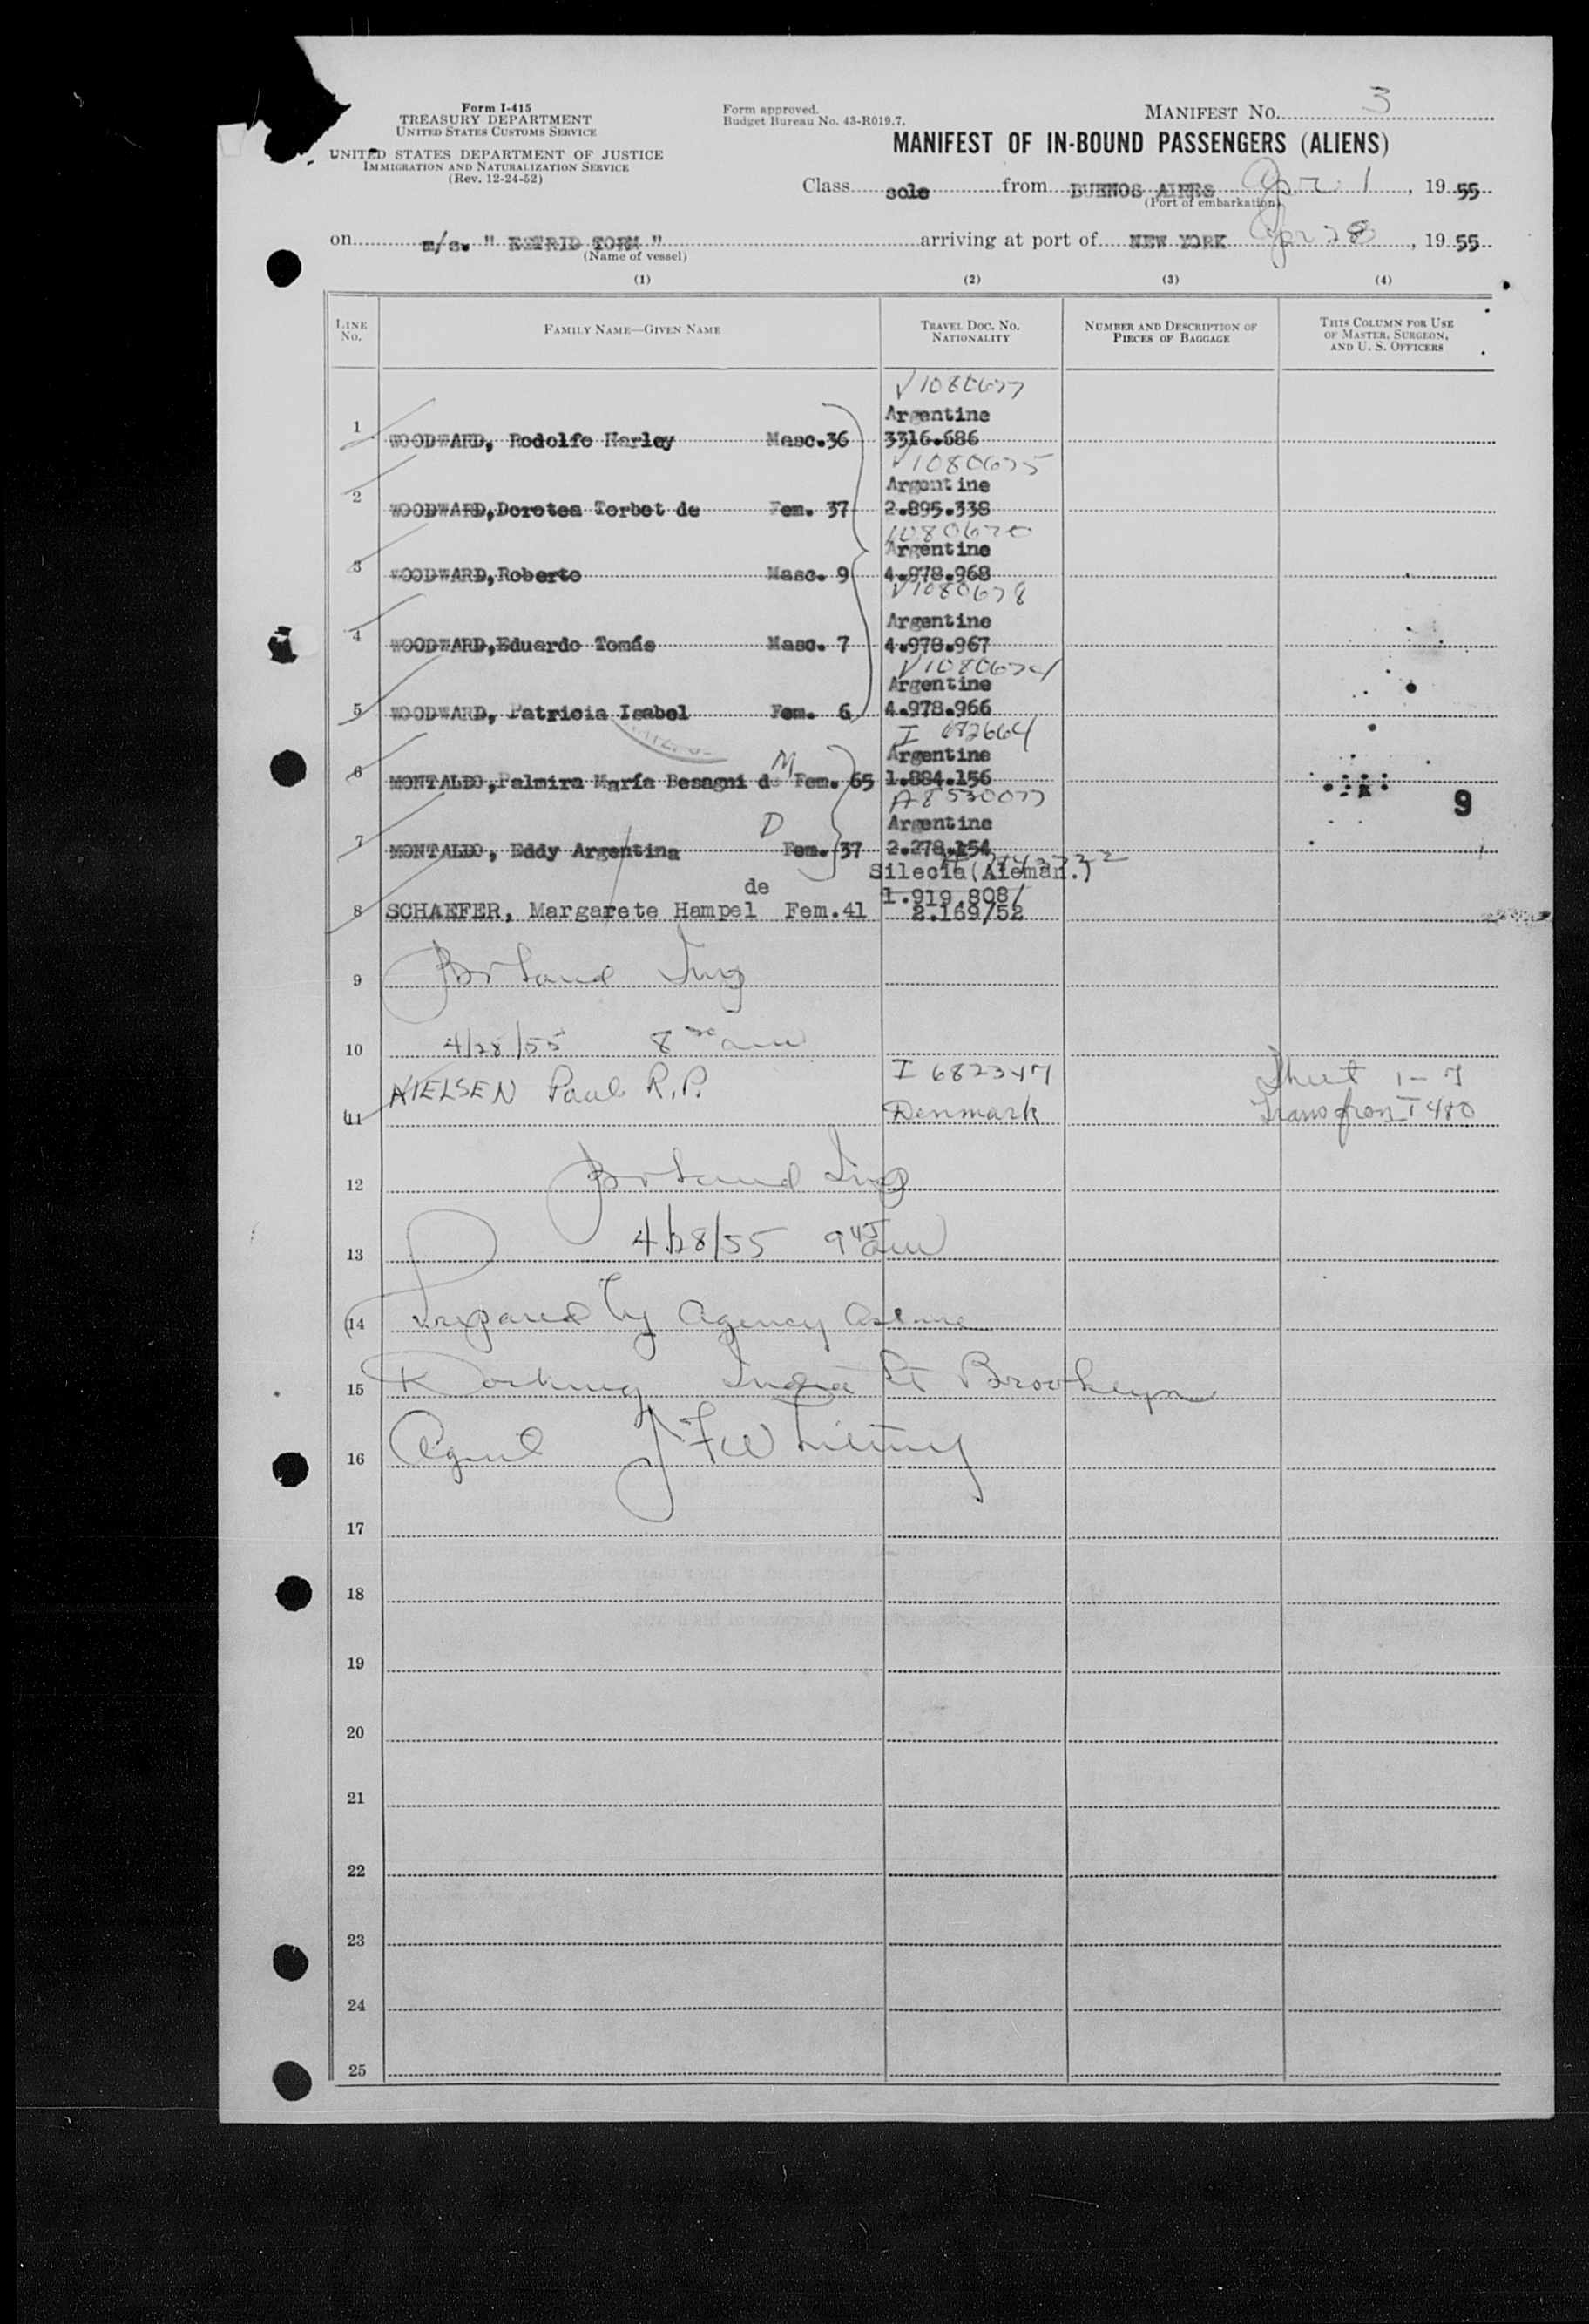 Form I-415
TREASURY DEPARTMENT
UNITED STATES CUSTOMS SERVICE
UNITED STATES DEPARTMENT OF JUSTICE
IMMIGRATION AND NATURALIZATION SERVICE
(Rev. 12-24-52)
Form approved.
Budget Bureau No. 43-R019.7.
MANIFEST NO. 3
MANIFEST OF IN-BOUND PASSENGERS (ALIENS)
Class sole from BUENOS AIRES Apr. 1, 1955
(Port of embarkation)
on m/s. " ESTRID TORM " arriving at port of NEW YORK Apr 28, 1955
(Name of vessel)
(1) (2) (3) (4)
LINE NO. FAMILY NAME—GIVEN NAME TRAVEL DOC. NO. NATIONALITY NUMBER AND DESCRIPTION OF PIECES OF BAGGAGE THIS COLUMN FOR USE OF MASTER, SURGEON, AND U. S. OFFICERS
V1080677
Argentine
1 WOODWARD, Rodolfo Harley Masc.36 3316.686
V1080675
Argentine
2 WOODWARD,Dorotea Torbet de Fem. 37 2.895.338
1080670
Argentine
3 WOODWARD,Roberto Masc. 9 4.978.968
V1080678
Argentine
4 WOODWARD,Eduardo Tomás Masc. 7 4.978.967
V1080674
Argentine
5 WOODWARD, Patricia Isabel Fem. 6 4.978.966
I 682664
Argentine
6 MONTALDO,Palmira María Besagni de M Fem. 65 1.884.156
A8530077
9
D Argentine
7 MONTALDO, Eddy Argentina Fem. 37 2.278.154
Silecia(Aleman.)
de 1.919.808/
8 SCHAEFER, Margarete Hampel Fem.41 2.169/52
9
10 4/28/55 8 30 am
NIELSEN Paul R.P. I 682347 Sheet 1-7
11 Denmark Trans from I 480
12
13 4/28/55 9 45 am
14 Prepared by Agency
15 Docking India St Brooklyn
16 Agent
17
18
19
20
21
22
23
24
25